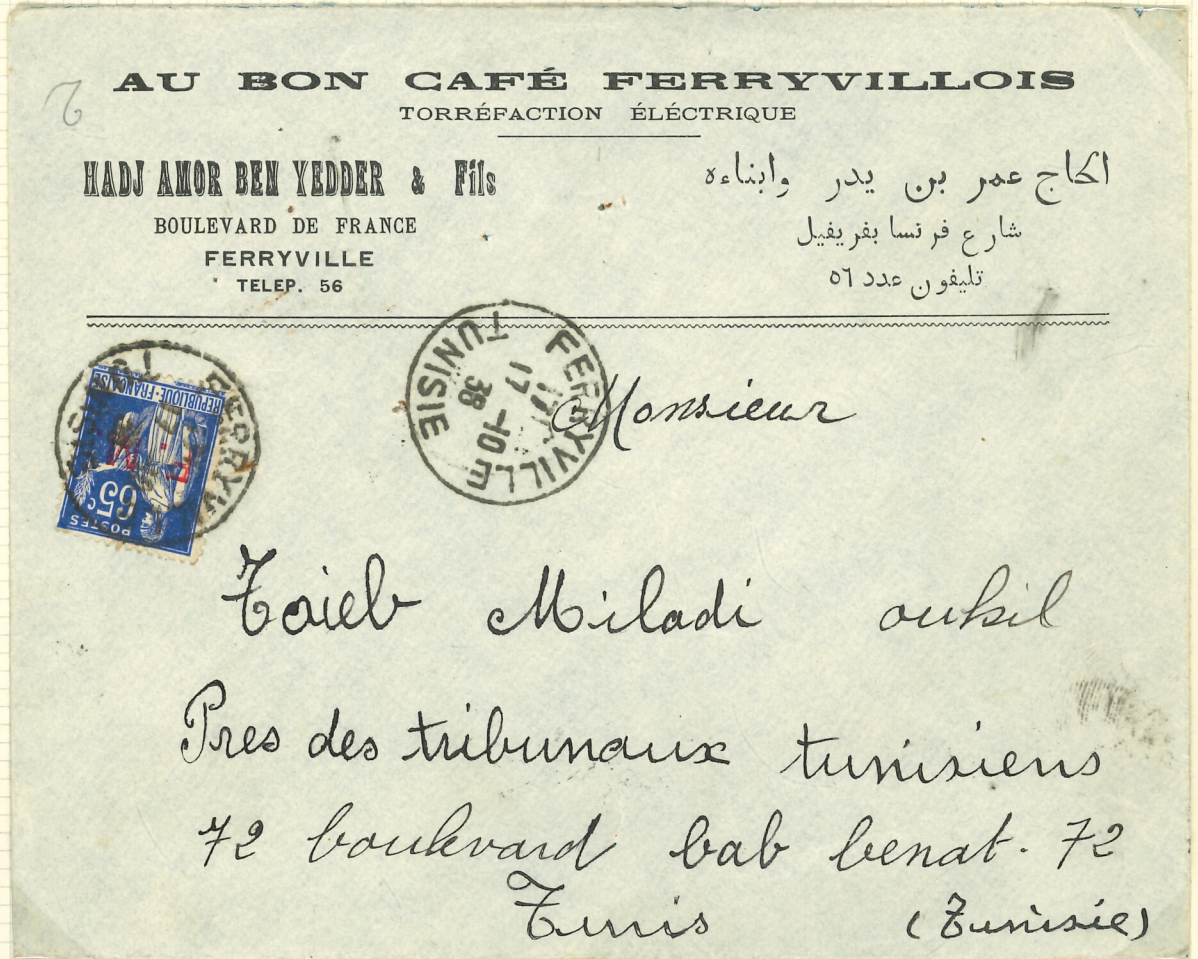 AU BON CAFÉ FERRYVILLOIS
TORRÉFACTION ÉLÉCTRIQUE
HADJ AMOR BEN YEDDER & Fils
BOULEVARD DE FRANCE
FERRYVILLE
TELEP. 56
الحاج عمر بن يدر وابناءه
شارع فرنسا بفريفيل
تليفون عدد ٥٦
FERRYVILLE
TUNISIE
17 -10
38
REPUBLIQUE·FRANÇAISE
F. M
65c
POSTES
Monsieur
Taieb Miladi oukil
Pres des tribunaux tunisiens
72 boulevard bab benat. 72
Tunis (Tunisie)